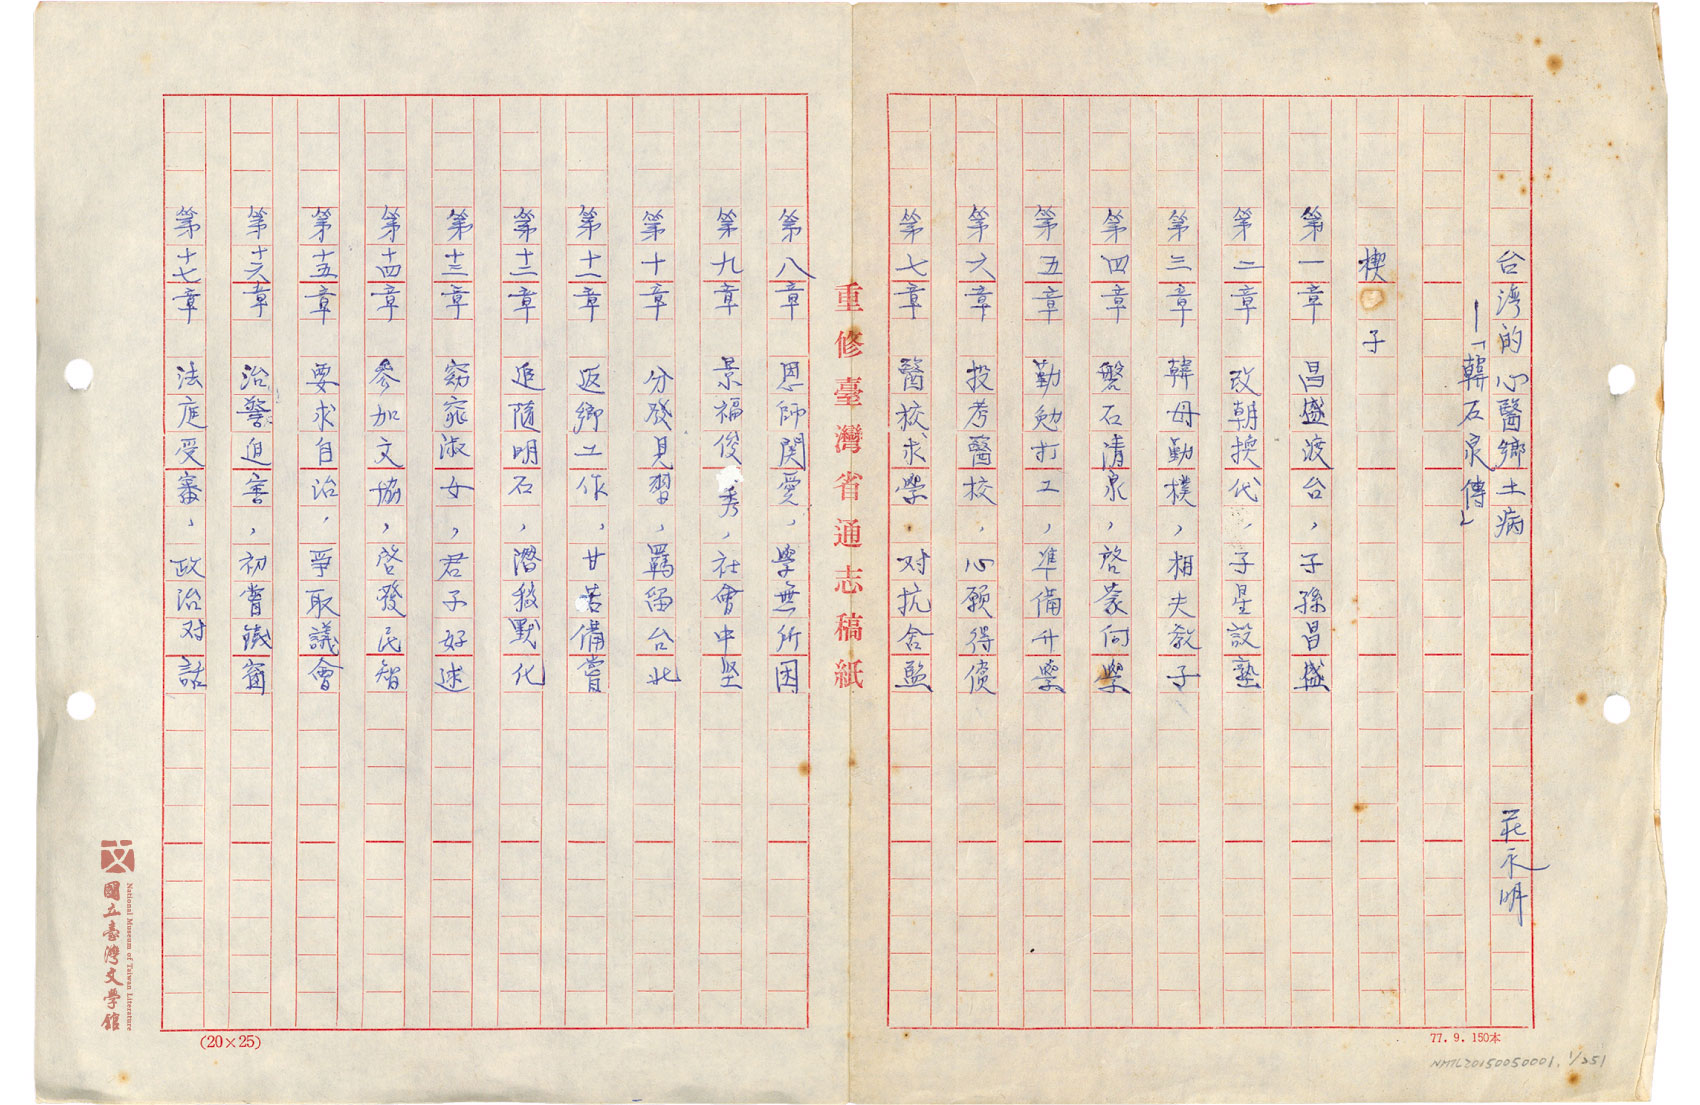 台湾的心醫鄉土病　莊永明
—「韓石泉傳」
楔子
第一章　昌盛渡台，子孫昌盛
第二章　改朝換代，子星設塾
第三章　韓母勤樸，相夫教子
第四章　磐石清泉，啓蒙何學
第五章　勤勉打工，準備升學
第六章　投考醫校，心願得償
第七章　醫校求學，对抗舍監
重修臺灣省通志稿紙
第八章　恩師関愛，學無所困
第九章　景福俊秀，社會中坚
第十章　分發見習，羈留台北
第十一章　返鄉工作，甘苦備嘗
第十二章　追隨明石，潛移默化
第十三章　窈窕淑女，君子好逑
第十四章　參加文協，啓發民智
第十五章　要求自治，爭取議會
第十六章　治警迫害，初嘗鐵窗
第十七章　法庭受審，政治对話
(20×25)
77. 9. 150本
NMTL20150050001, 1/251
國立臺灣文學館
National Museum of Taiwan Literature